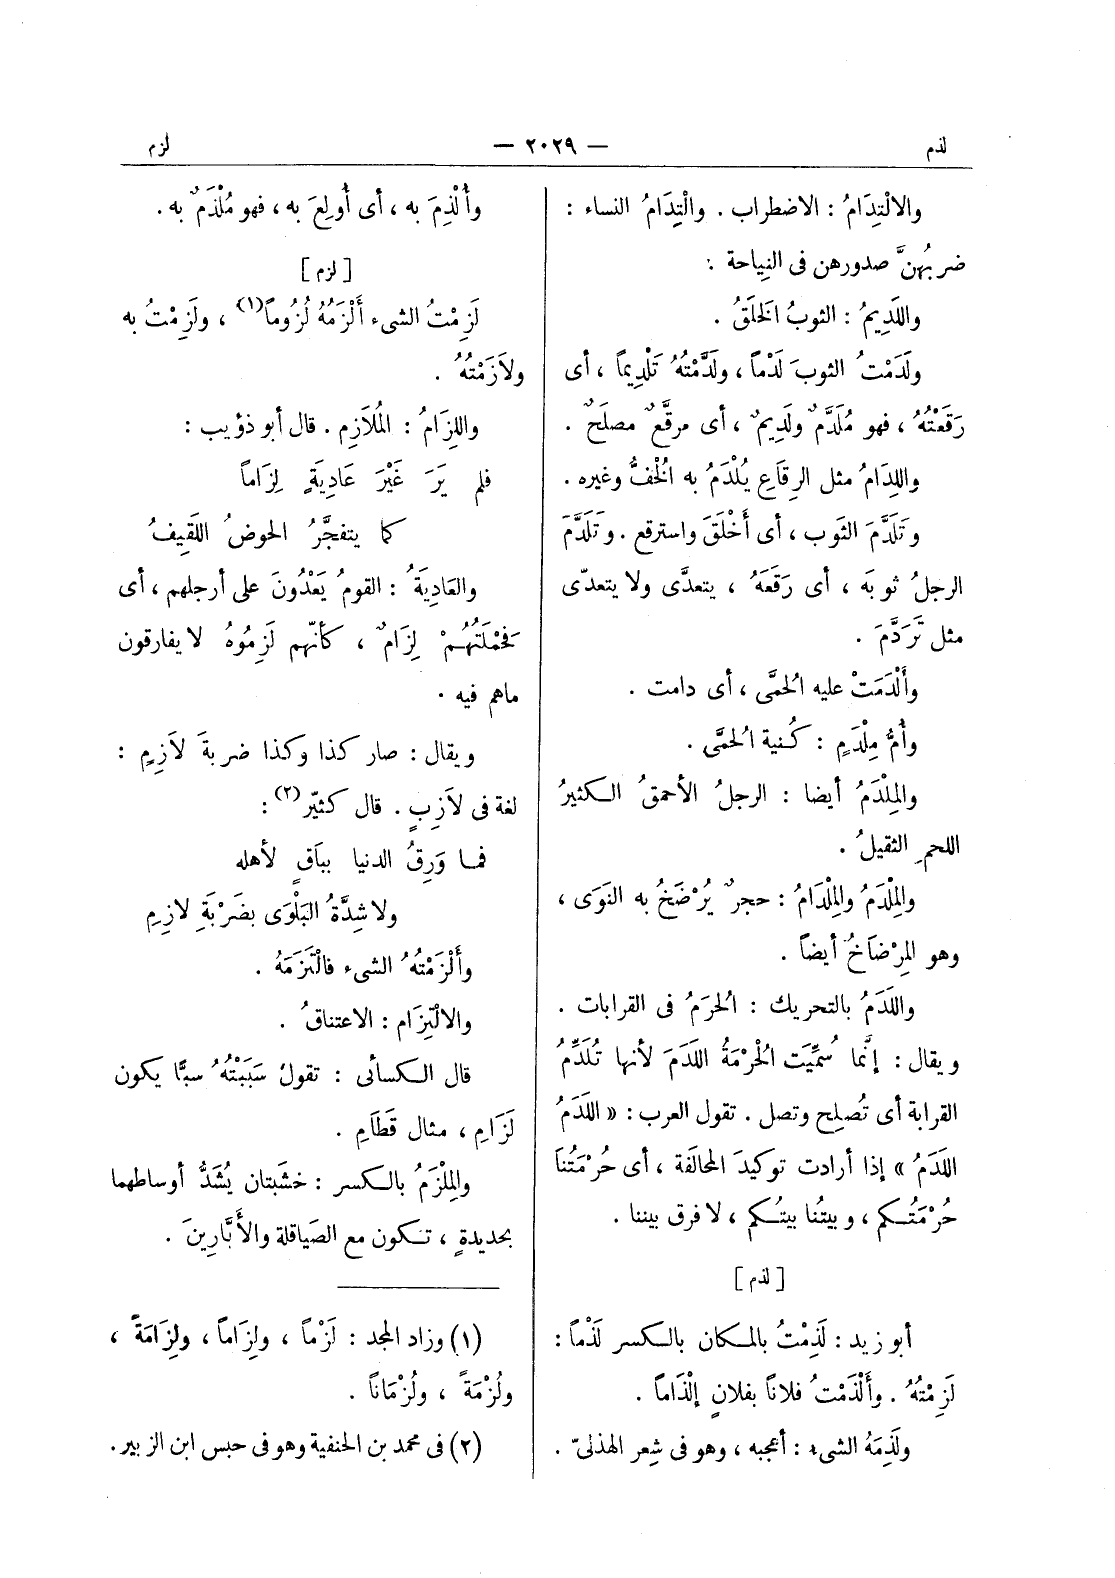 لذم
— ٢٠٢٩ —
لزم
والالْتِدَامُ : الاضطراب . والْتِدَامُ النساء :
ضربُهنَّ صدورهن فى النِياحة .
واللَدِيمُ : الثوبُ الخَلَقُ .
ولَدَمْتُ الثوبَ لَدْماً ، ولَدَّمْتُهُ تَلْدِيماً ، أى
رَقَعْتُهُ ، فهو مُلَدَّمٌ ولَدِيمٌ ، أى مرقَّعٌ مصلَحٌ .
واللِدَامُ مثل الرِقَاعِ يُلْدَمُ به الخُفُّ وغيره .
وتَلَدَّمَ الثَوب ، أى أَخْلَقَ واسترقع . وتَلَدَّمَ
الرجلُ ثوبَه ، أى رَقَعَهُ ، يتعدَّى ولا يتعدّى
مثل تَرَدَّمَ .
وأَلْدَمَتْ عليه الحُمَّى ، أى دامت .
وأُمُّ مِلْدَمٍ : كُنية الحُمَّى .
والمِلْدَمُ أيضا : الرجلُ الأحمقُ الكثيرُ
اللحمِ الثقيلُ .
والمِلْدَمُ والمِلْدَامُ : حجرٌ يُرْضَخُ به النَوَى ،
وهو المِرْضَاخُ أيضاً .
واللَدَمُ بالتحريك : الحُرَمُ فى القرابات .
ويقال : إنَّما سُمِّيَت الحُرْمَةُ اللَدَمَ لأنها تُلَدِّمُ
القرابة أى تُصلِح وتصل . تقول العرب : « اللَدَمُ
اللَدَمُ » إذا أرادت توكيدَ المحالفة ، أى حُرْمَتُنَا
حُرْمَتُكم ، وبيتُنا بيتُكم ، لا فرق بيننا .
[ لذم ]
أبو زيد : لَذِمْتُ بالمكان بالكسر لَذْماً :
لَزِمْتُهُ . وأَلْذَمْتُ فلاناً بفلانٍ إلْذَاماً .
ولَذِمَهُ الشىء : أعجبه ، وهو فى شِعر الهذلىّ .
وأُلْذِمَ به ، أى أُولِعَ به ، فهو مُلْذَمٌ به .
[ لزم ]
لَزِمْتُ الشىء أَلْزَمُهُ لُزُوماً (١) ، ولَزِمْتُ به
ولاَزَمْتُهُ .
واللِزَامُ : المُلاَزِم . قال أبو ذؤيب :
فلم يَرَ غَيْرَ عَادِيَةٍ لِزَاماً
كما يتفجَّرُ الحوضُ اللَقِيفُ
والعَادِيَةُ : القومُ يَعْدُونَ على أرجلهم ، أى
فَحَمْلَتُهُمْ لِزَامٌ ، كأنّهم لَزِمُوهُ لا يفارقون
ماهم فيه .
ويقال : صار كذا وكذا ضربةَ لاَزِمٍ :
لغة فى لاَزِبٍ . قال كثيّر (٢) :
فما وَرِقُ الدنيا بباَقٍ لأهله
ولا شِدَّةُ البَلْوَى بضَرْبَةِ لازِمِ
وأَلْزَمْتُهُ الشىء فالْتَزَمَهُ .
والالْتِزَام : الاعتناقُ .
قال الكسائى : تقول سَبَبْتُهُ سبًّا يكون
لَزَامِ ، مثال قَطَامِ .
والمِلْزَمُ بالكسر : خشَبتان يُشَدُّ أوساطهما
بحديدةٍ ، تكون مع الصَياقلة والأَبَّارِينَ .
(١) وزاد المجد : لَزْماً ، ولِزَاماً ، ولِزَامَةً ،
ولُزْمَةً ، ولُزْمَاناً .
(٢) فى محمد بن الحنفية وهو فى حبس ابن الزبير .